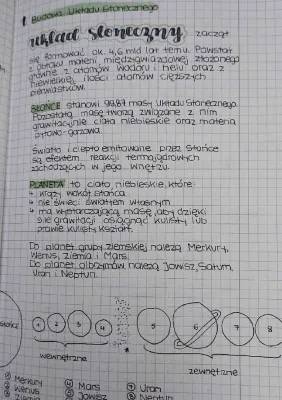 1. Budowa Układu Słonecznego
układ słoneczny zaczął
się formować ok. 4,6 mld lat temu. Powstał
z obłoku materii międzygwiazdowej złożonego
głównie z atomów wodoru i helu oraz z
niewielkiej ilości atomów cięższych
pierwiastków.
SŁOŃCE stanowi 99,87 masy Układu Słonecznego.
Pozostałą masę tworzą związane z nim
grawitacyjnie ciała niebieskie oraz materia
pyłowo-gazowa.
Światło i ciepło emitowane przez Słońce
są efektem reakcji termojądrowych
zachodzących w jego wnętrzu.
PLANETA to ciało niebieskie, które:
↳ krąży wokół Słońca
↳ nie świeci światłem własnym
↳ ma wystarczającą masę, aby dzięki
sile grawitacji osiągnąć kulisty lub
prawie kulisty kształt.
Do planet grupy ziemskiej należą Merkury,
Wenus, Ziemia i Mars.
Do planet olbrzymów należą Jowisz, Saturn,
Uran i Neptun.
Słońce 1 2 3 4 5 6 7 8
wewnętrzne
zewnętrzne
① Merkury ④ Mars ⑦ Uran
② Wenus ⑤ Jowisz ⑧ Neptun
Ziemia